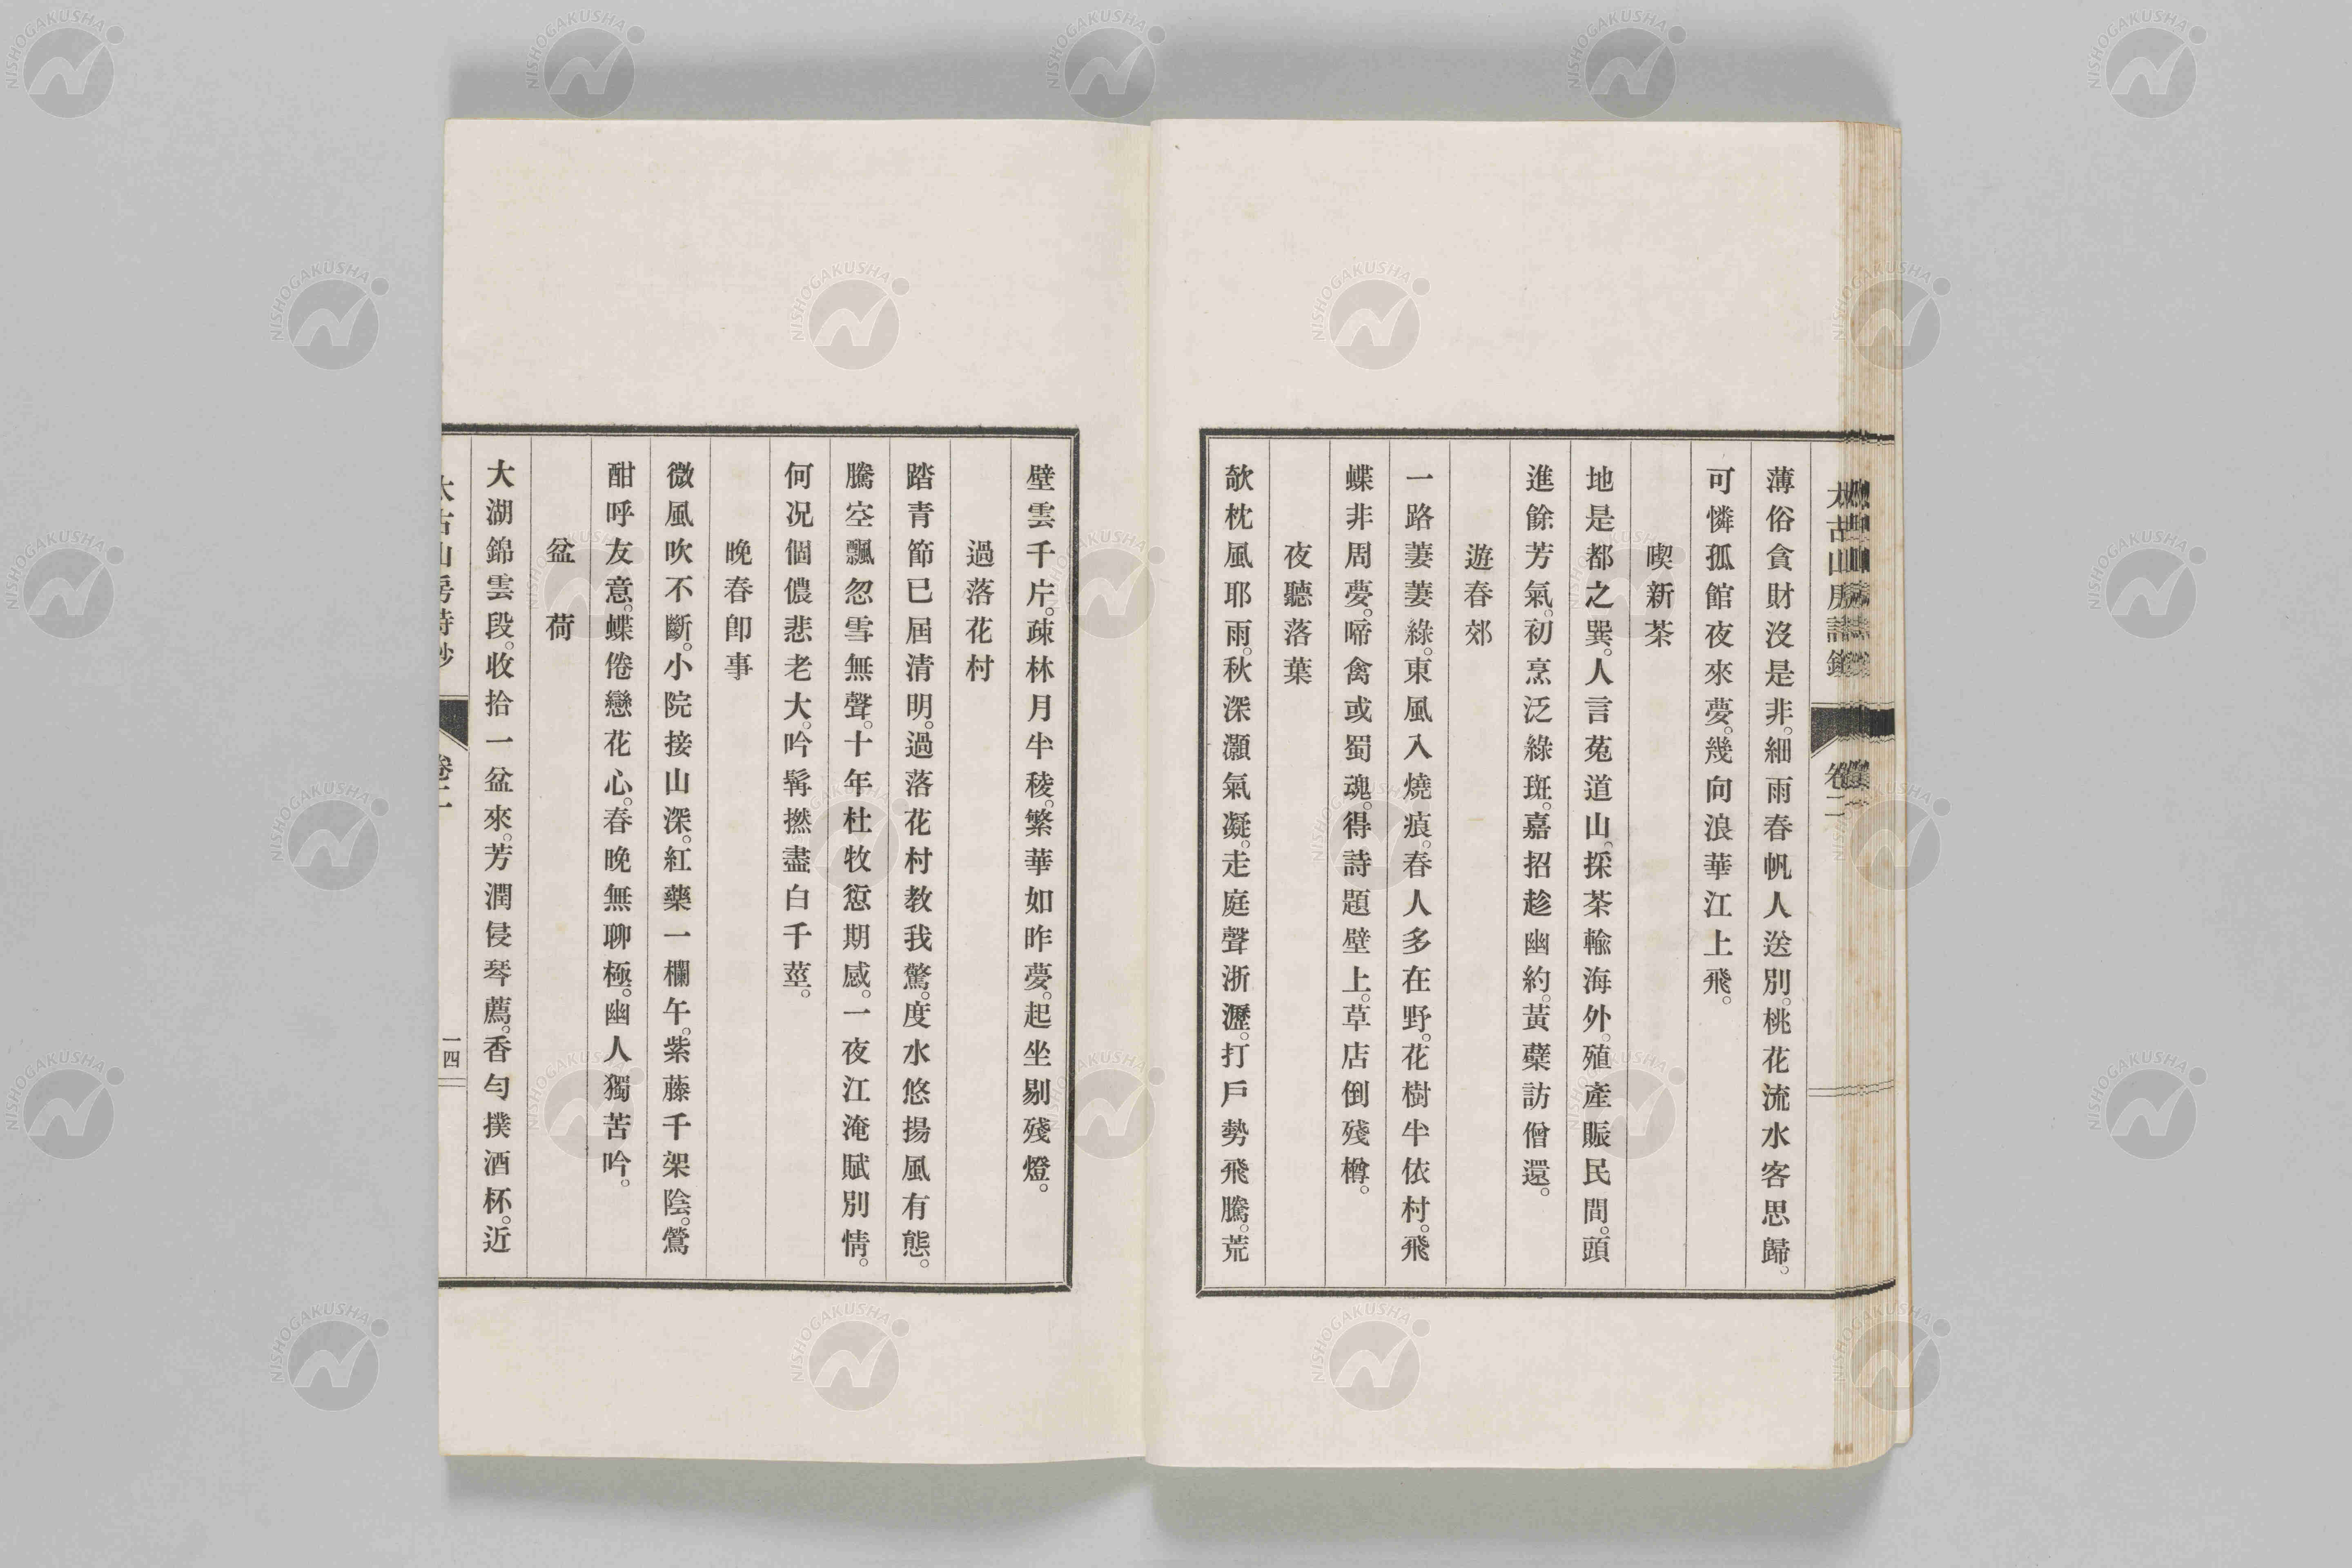 太古山房詩鈔
卷二
薄俗貪財沒是非。細雨春帆人送別。桃花流水客思歸。
可憐孤館夜來夢。幾向浪華江上飛。
喫新茶
地是都之巽。人言菟道山。採茶輸海外。殖產賑民間。頭
進餘芳氣。初烹泛綠斑。嘉招趁幽約。黃蘗訪僧還。
遊春郊
一路萋萋綠。東風入燒痕。春人多在野。花樹半依村。飛
蝶非周夢。啼禽或蜀魂。得詩題壁上。草店倒殘樽。
夜聽落葉
欹枕風耶雨。秋深灝氣凝。走庭聲浙瀝。打戶勢飛騰。荒
壁雲千片。疎林月半稜。繁華如昨夢。起坐剔殘燈。
過落花村
踏青節已屆清明。過落花村教我驚。度水悠揚風有態。
騰空飄忽雪無聲。十年杜牧愆期感。一夜江淹賦別情。
何況個儂悲老大。吟髯撚盡白千莖。
晚春卽事
微風吹不斷。小院接山深。紅藥一欄午。紫藤千架陰。鶯
酣呼友意。蝶倦戀花心。春晚無聊極。幽人獨苦吟。
盆荷
大湖錦雲段。收拾一盆來。芳潤侵琴薦。香勻撲酒杯。近
太古山房詩鈔
卷二
一四
NISHOGAKUSHA